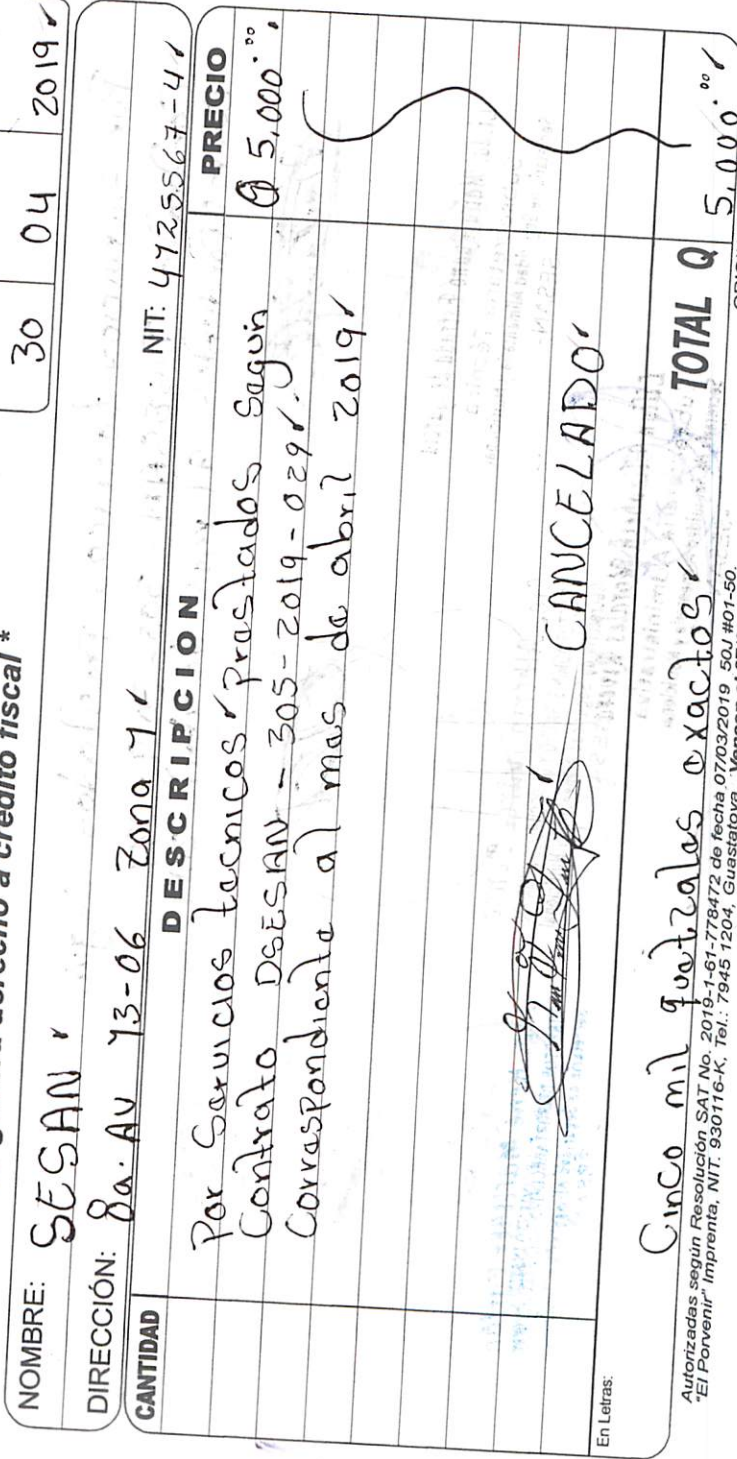 derecho a crédito fiscal *
30 04 2019
NOMBRE: SESAN
DIRECCIÓN: 8a. Av 13-06 Zona 1 NIT: 4725567-4
CANTIDAD DESCRIPCION PRECIO
Por Servicios tecnicos prestados Según Q 5,000.00
Contrato DSESAN - 305-2019-029.
Correspondiente al mes de abril 2019
CANCELADO
TOTAL Q 5,000.00
En Letras: Cinco mil quetzales exactos
Autorizadas según Resolución SAT No. 2019-1-61-778472 de fecha 07/03/2019 50J #01-50.
"El Porvenir" Imprenta, NIT. 930116-K, Tel.: 7945 1204, Guastatoya